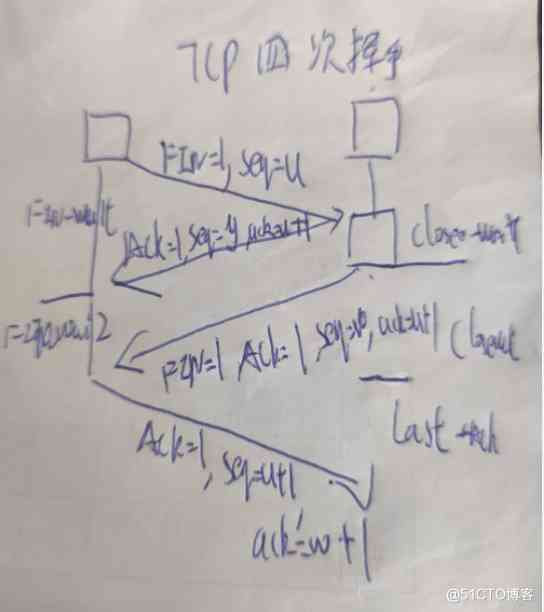 TCP 四次挥手
FIN=1, seq=u
FIN-wait
Ack=1, seq=y, ack=u+1
close-wait
2
FIN=1 Ack=1, seq=w, ack=u+1
Last-Ack
Ack=1, seq=u+1
ack=w+1
@51CTO博客